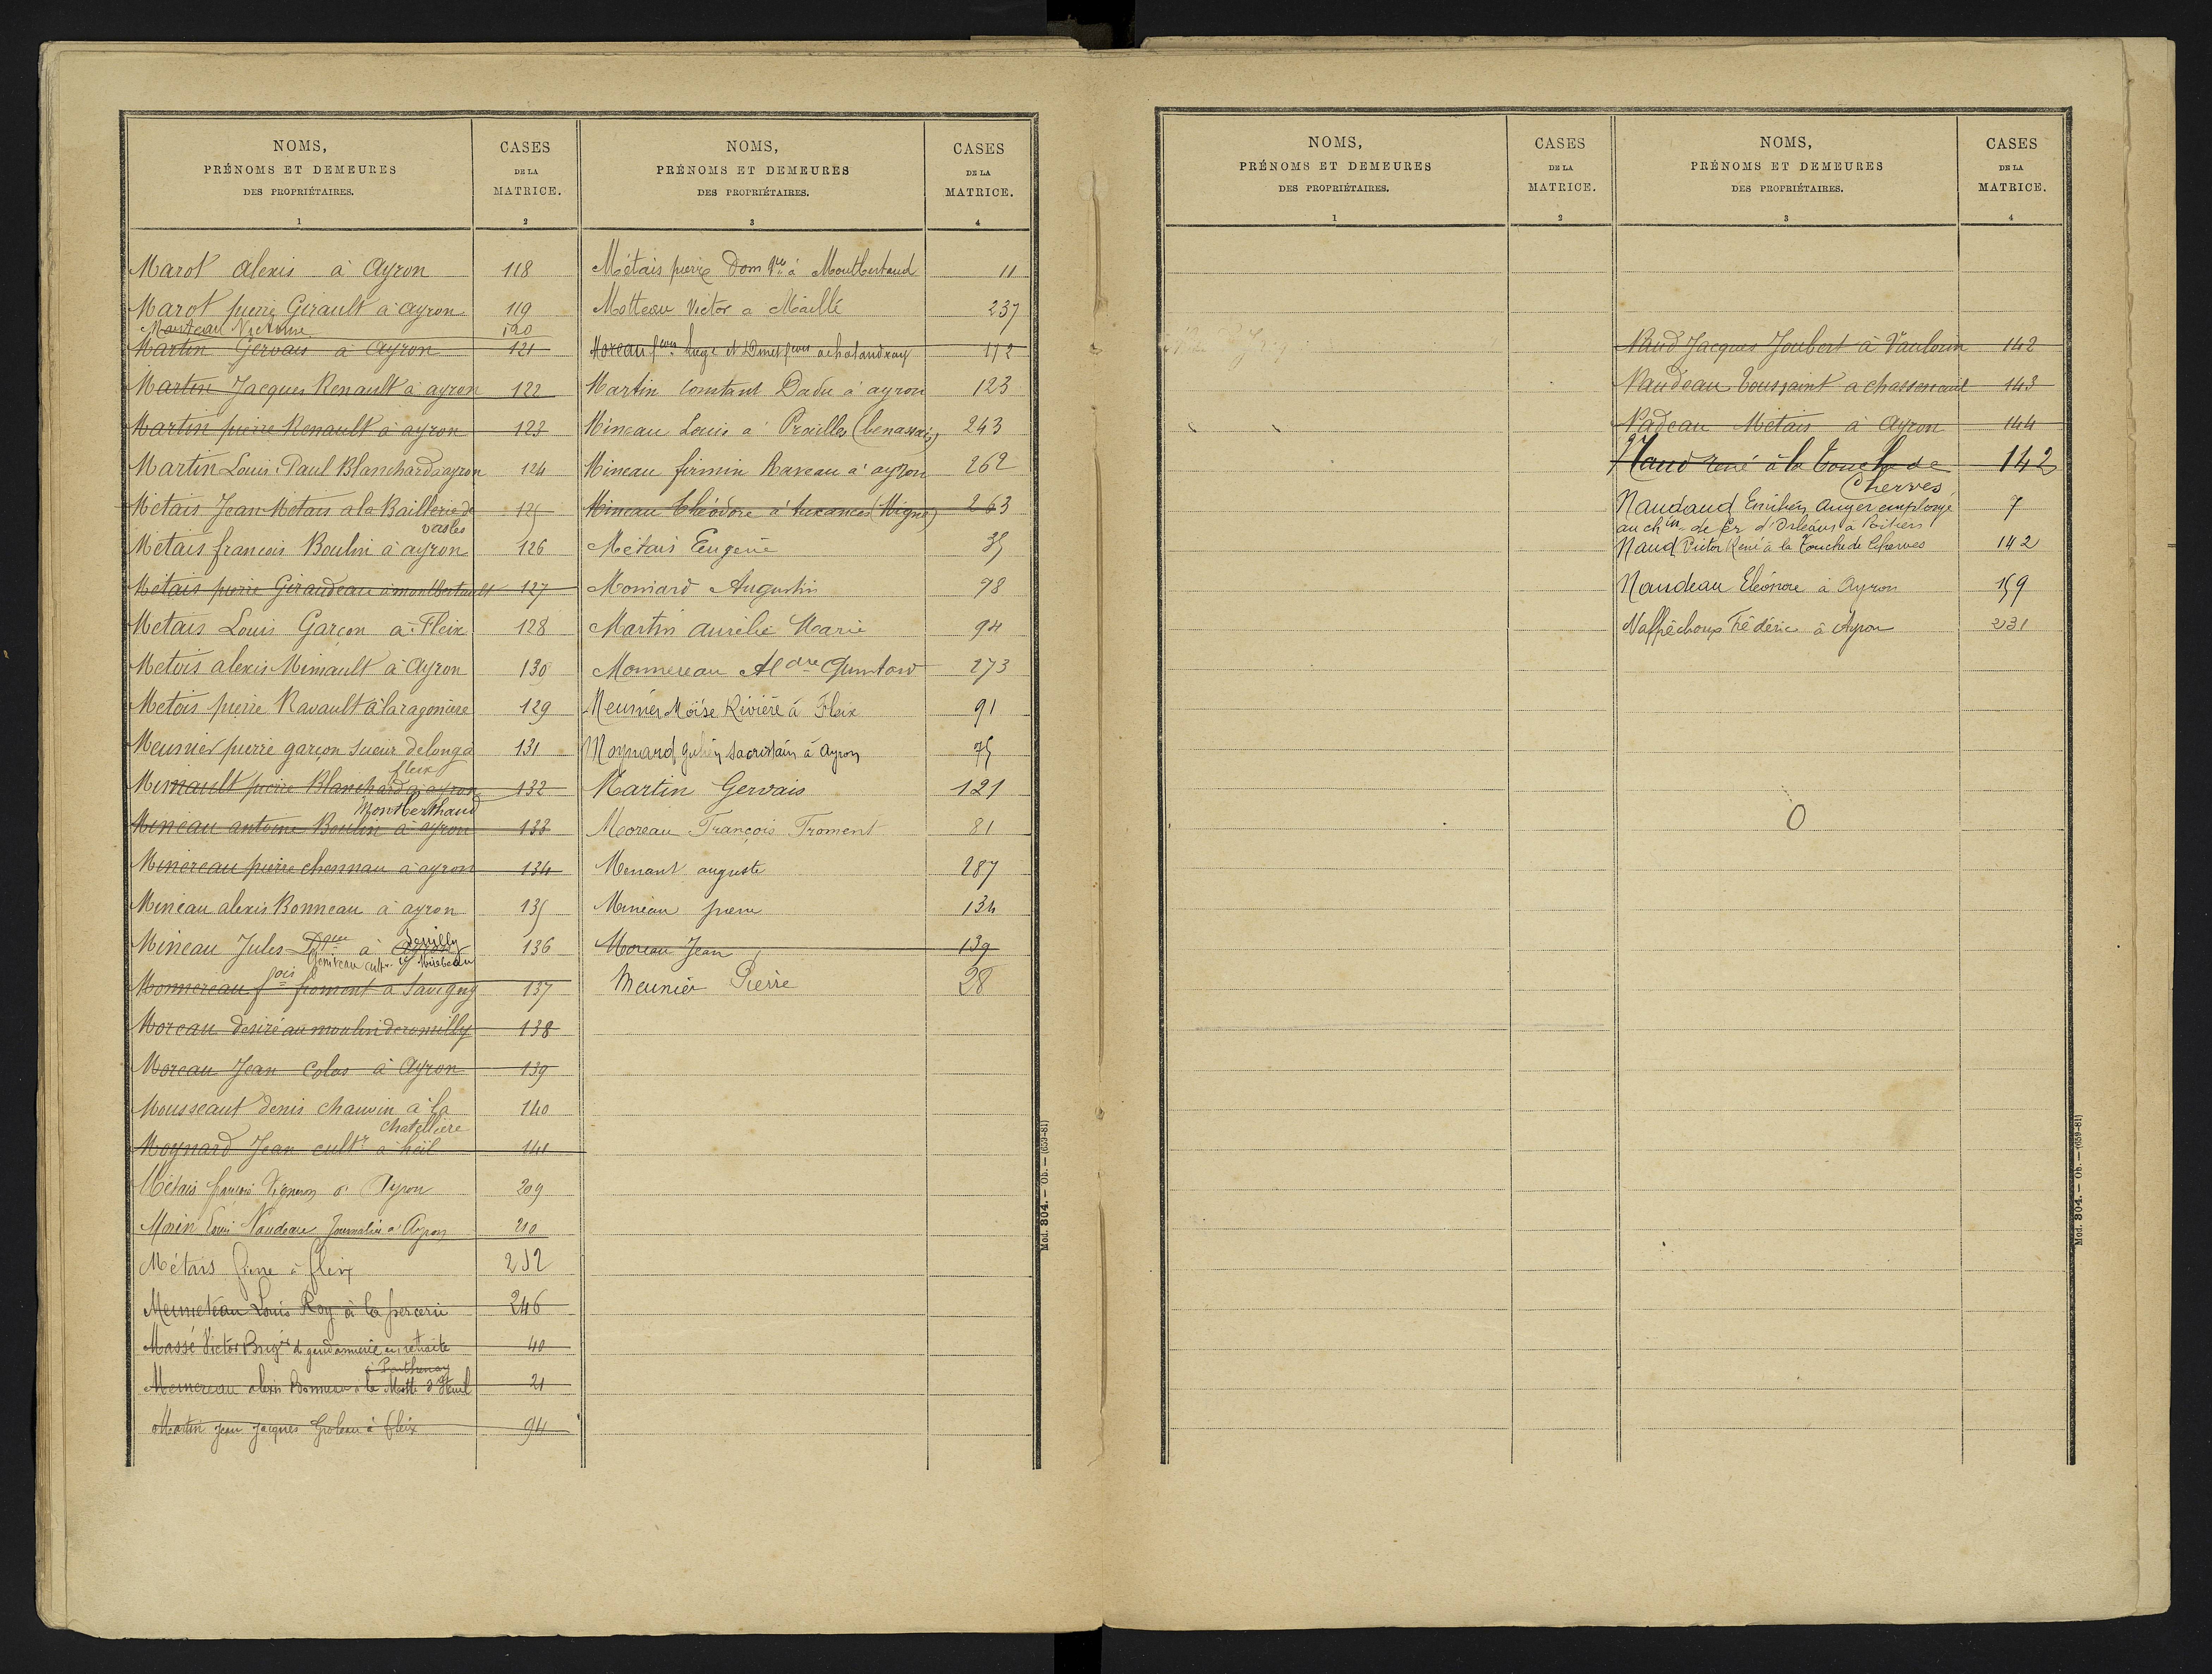 NOMS,
PRÉNOMS ET DEMEURES
DES PROPRIÉTAIRES.
1
CASES
DE LA
MATRICE.
2
Marot alexis à Ayron 118
Marot pierre Girault à ayron 119
Manteau Victorine 120
Martin Gervais à Ayron 121
Martin Jacques Renault à ayron 122
Martin pierre Renault à ayron 123
Martin Louis Paul Blanchard à ayron 124
Métais Jean Métais a la Baillerie de 125
vasles
Métais francois Boulin à ayron 126
Métais pierre Giraudeau à montbertault 127
Metais Louis Garçon à Fleix 128
Metois alexis Minault à Ayron 130
Metois pierre Ravault à laragonière 129
Meunier pierre garçon sueur delonga 131
fleix
Minault pierre Blanchard à ayron 132
Montberthaud
Mineau antoine Boulin à ayron 133
Minereau pierre chonnau à ayron 134
Mineau alexis Bonneau à ayron 135
Mineau Jules à Ayron 136
cultr Mirebeau
Monnereau fois froment à Savigny 137
Moreau desiré au moulin deromilly 138
Moreau Jean Colas à Ayron 139
Mousseaut denis chauvin à la 140
chatellière
Moynard Jean cultr à héil 141
Métais francois Vigneron à Ayron 209
Morin Louis Naudeau Journalier à Ayron 210
Métais Pierre à fleix 212
Meuneteau Louis Roy à la percerie 246
Massé Victor Brigr de gendarmerie en retraite 40
à Parthenay
Memereau alexis Bonneau à la Motte d'Iteuil 21
Martin Jean Jacques Groleau à Fleix 94
NOMS,
PRÉNOMS ET DEMEURES
DES PROPRIÉTAIRES.
3
CASES
DE LA
MATRICE.
4
Métais pierre Dom que à Montbertaud 11
Motteau Victor a Maillé 237
Moreau fcois achalandray 112
Martin Constant Dadu à ayron 123
Mineau Louis a' Prailles (benassais) 243
Mineau firmin Raveau a' ayron 262
Mineau Théodore à auxances (Migné) 263
Métais Eugene 35
Moniard Augustin 98
Martin Aurélie Marie 94
Monnereau Aldre 273
Meunier Moïse Rivière à Fleix 91
Moynard Julien sacristain à Ayron 75
Martin Gervais 121
Moreau François Froment 81
Menant auguste 287
Mineau pierre 134
Moreau Jean 139
Meunier Pierre 28
Mod. 304. — Ob. — (659-81)
NOMS,
PRÉNOMS ET DEMEURES
DES PROPRIÉTAIRES.
1
CASES
DE LA
MATRICE.
2
NOMS,
PRÉNOMS ET DEMEURES
DES PROPRIÉTAIRES.
3
CASES
DE LA
MATRICE.
4
Naud Jacques Joubert à Vaulorin 142
Naudeau toussaint a chasseneuil 143
Nadeau Métais à Ayron 144
Naud René à la Touche de 142
Cherves
Naudaud Emilien Auger employé 7
au chin de fer d'Orléans à Poitiers
Naud Victor René à la Touche de Cherves 142
Naudeau Eléonore à Ayron 159
Naffréchoux Frédéric à Ayron 231
0
Mod. 304. — Ob. — (659-81)